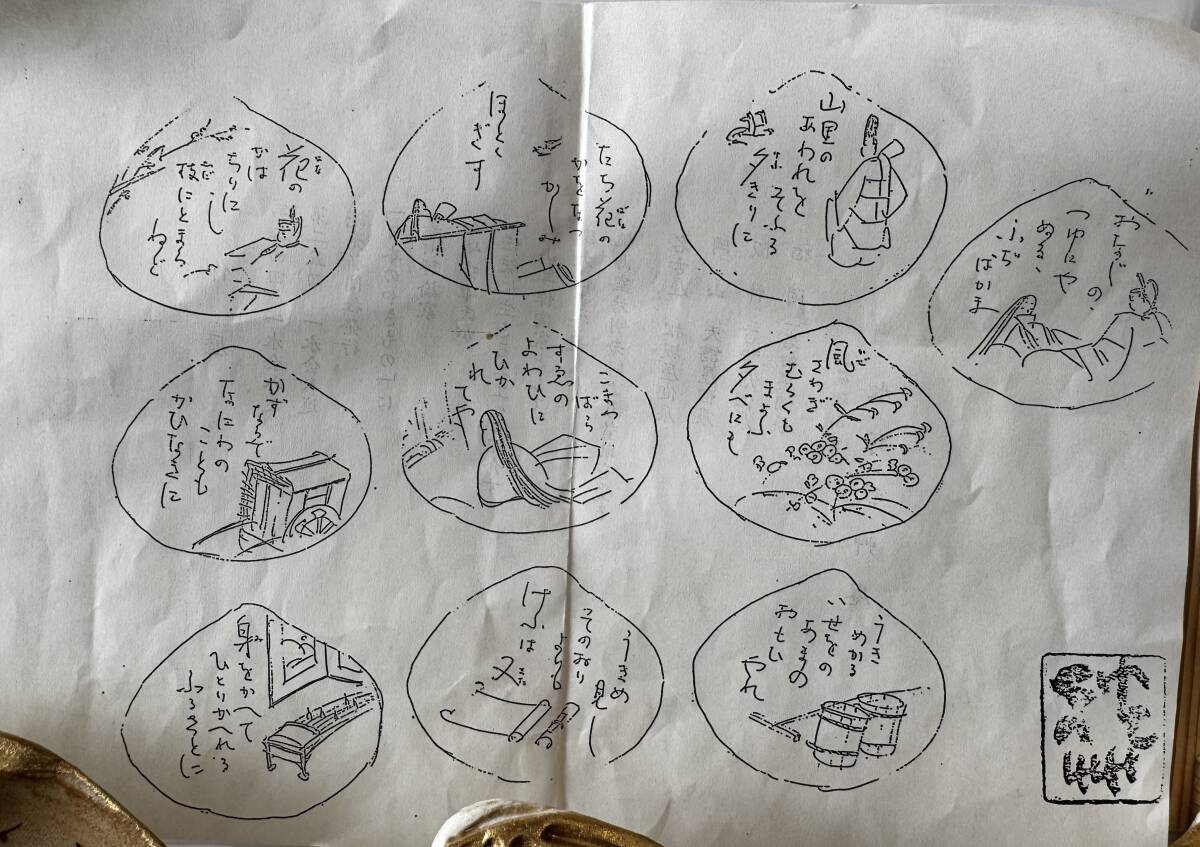 おなじ
の
つゆにや
ぬるゝ
ふぢ
ばかま
山里の
あわれを
そふる
夕ぎりに
風
さわぎ
むらくも
まよふ
夕べにも
うき
めかる
いせをの
あまの
おもい
やれ
たち花の
かほ
ほとゝ
ぎす
こまつ
ばら
すゑの
よわひに
ひか
れ
てや
うきめ
見し
そのおり
よりも
けふは
又
また
花の
かは
ちりに
し
枝にとまら
ねど
かず
ならで
なにわの
ことも
かひなきに
身をかへて
み
ひとりかへれる
ふるさとに